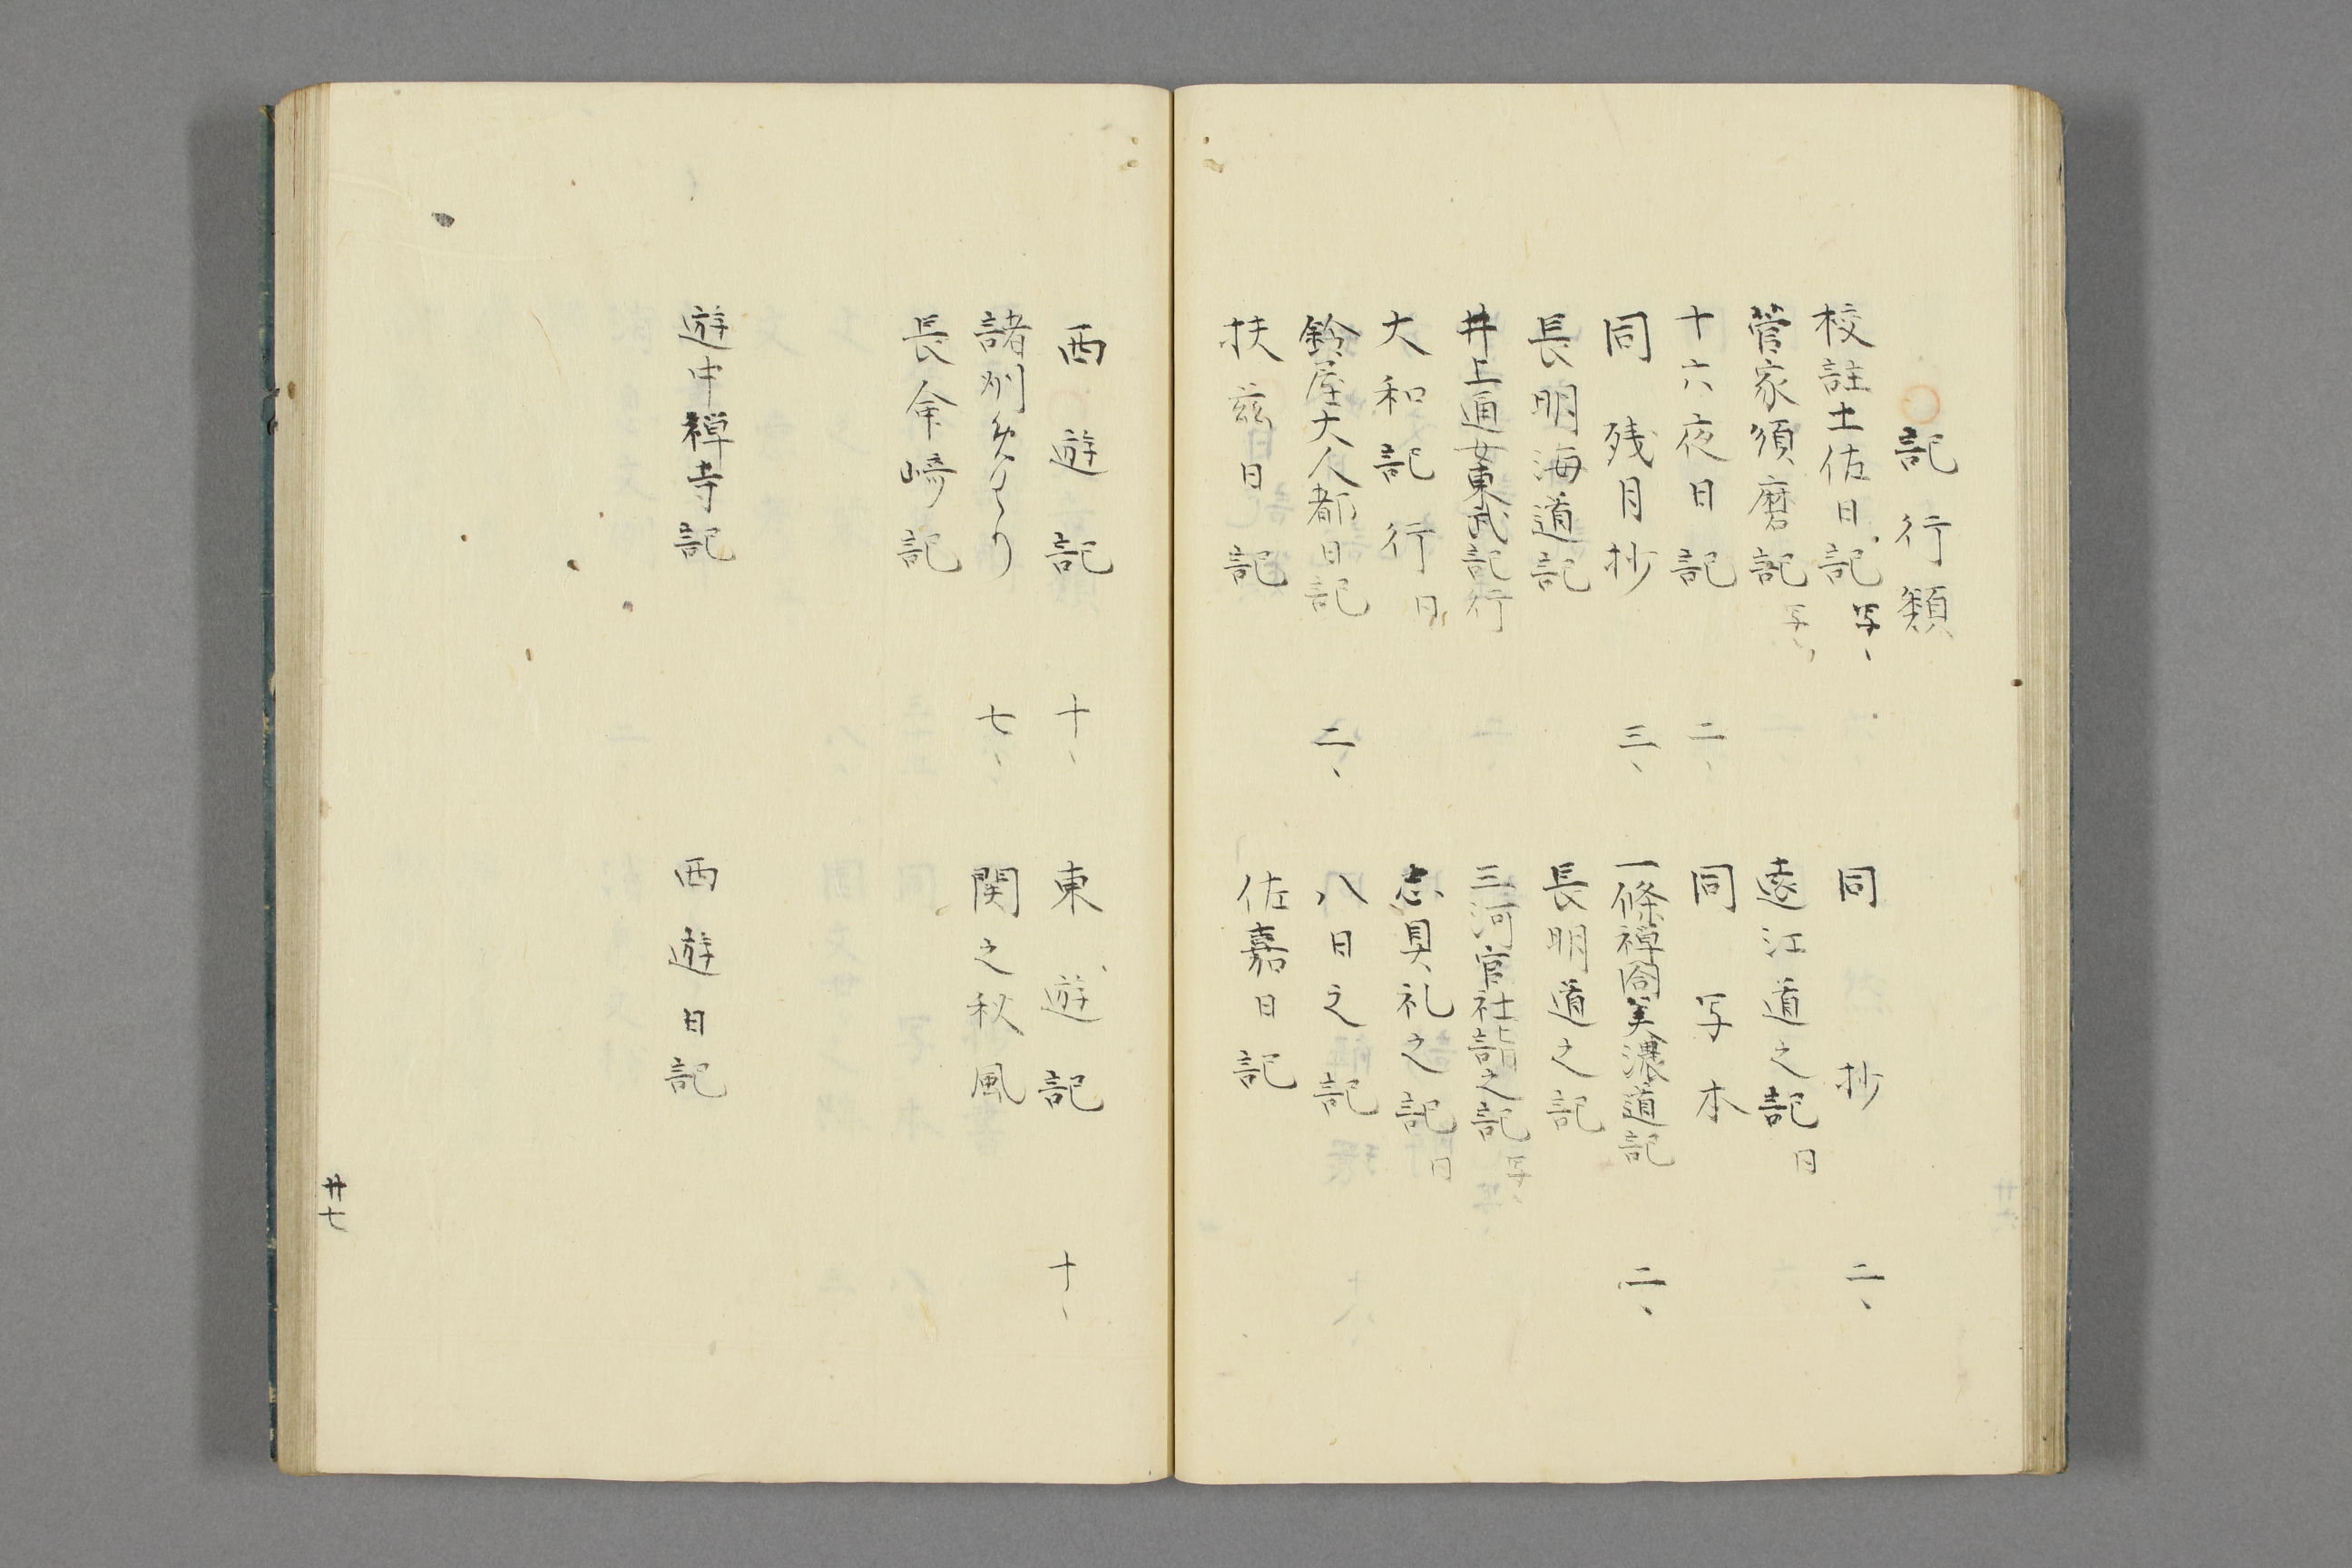 ○記行類
校註土佐日記 写、
同抄 二、
菅家須磨記 写、
遠江道之記 日
十六夜日記 二、
同写本
同残月抄 三、
一條禅閤美濃道記 二、
長明海道記
長明道之記
井上通女東武記行
三河官社詣之記 写、
大和記行 日
志貝礼之記 日
鈴屋大人都日記 二、
八日之記
扶茲日記
佐嘉日記
西遊記 十、
東遊記 十、
諸州めくり 七、
関之秋風
長余﨑記
遊中禅寺記
西遊日記
廿七